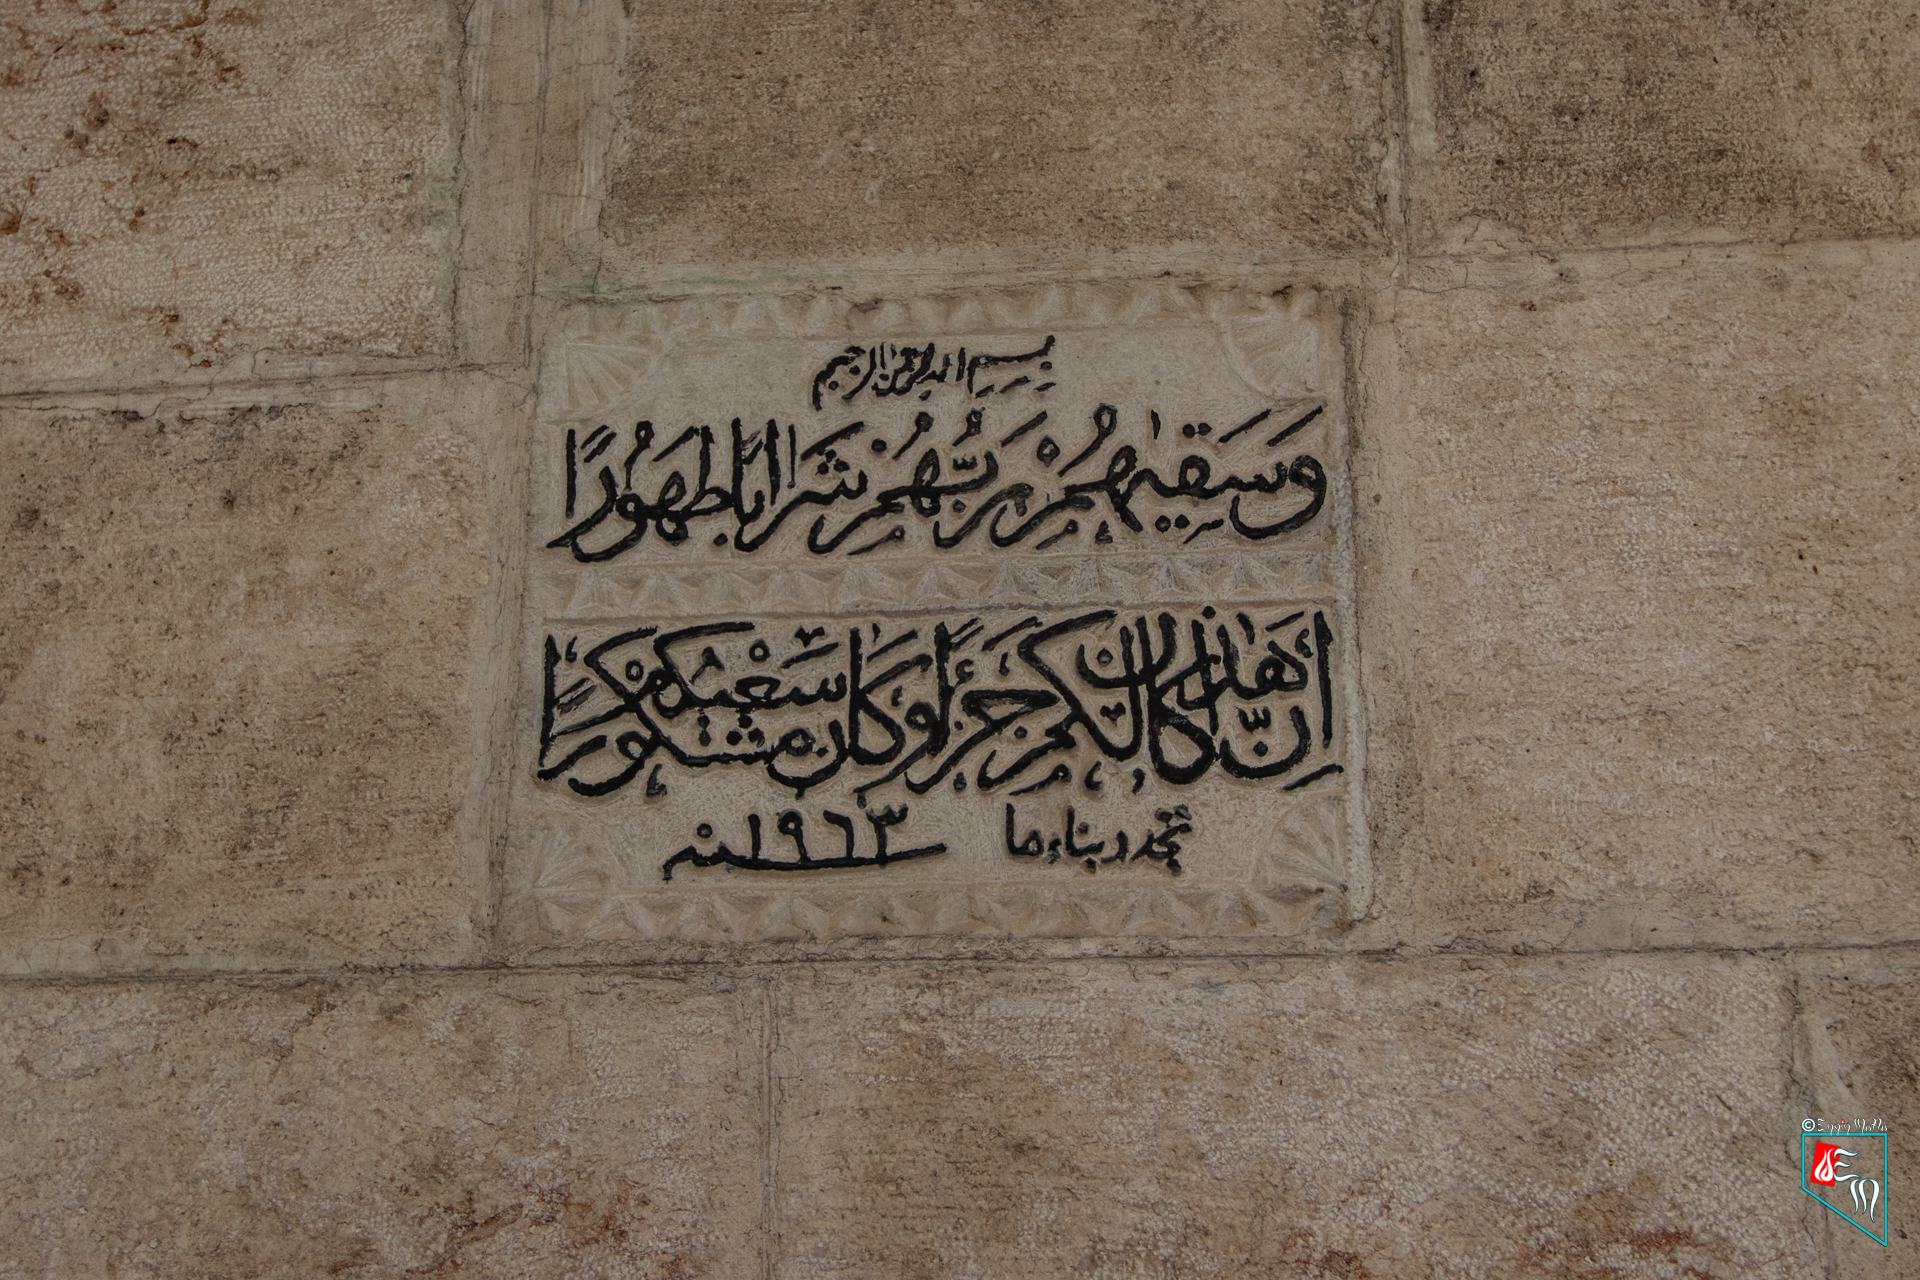 بسم الله الرحمن الرحيم
وَسَقٰيهُمْ رَبُّهُمْ شَرَابًا طَهُورًا
إِنَّ هٰذَا كَانَ لَكُمْ جَزَاءً وَكَانَ سَعْيُكُمْ مَشْكُورًا
تجدد بناءها سنة ١٩٦٣